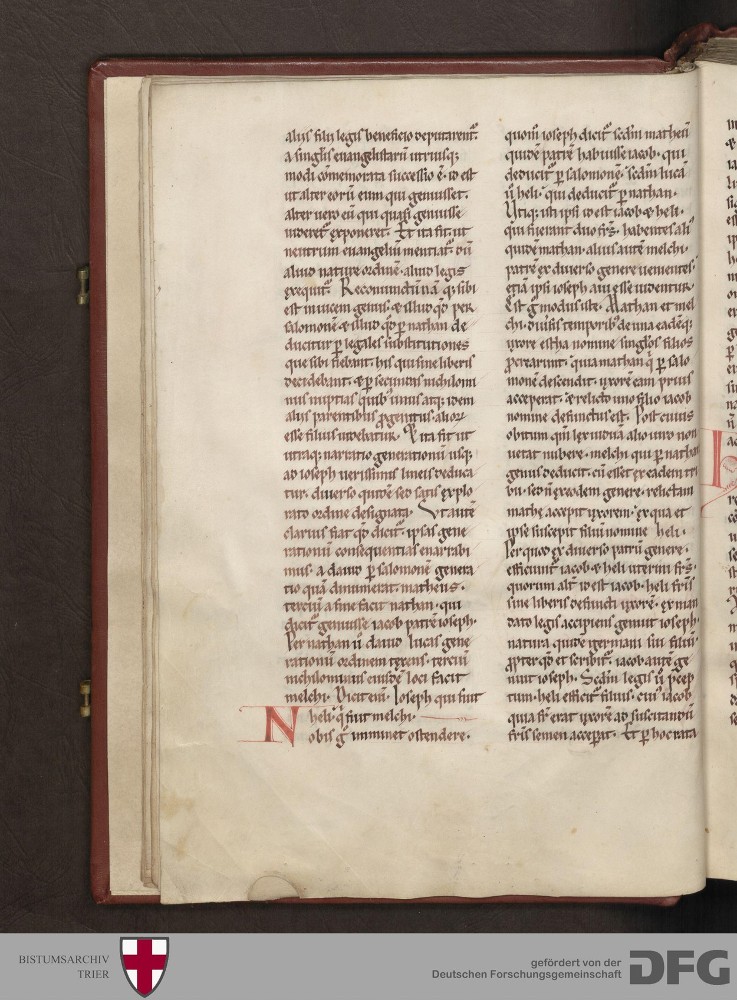 alius filii legis beneficio deputarent᷑.
a singlis euangelistarū utriusq;
modi cōmemorata successio ē. id est
ut alter eorū eum qui genuisset.
alter uero eū qui quasi genuisse
uideret᷑ exponeret. Et ita fit. ut
neutrum euangeliū mentiat᷑. dū
aliud nature ordinē. aliud legis
exequit᷑. Reconiunctū nāq; sibi
est inuicem genus. & illud qd̄ per
salomonē & illud qd̄ p̱ nathan de
ducitur p̱ legales substitutiones
que fiebant. his qui sine liberis
decidebant. & p̱ secundas nichilomi
nus nuptias quib᷒ unus atq; idem
alius parentibus ꝓgenitus. alior̄
esse filius uidebatur. Et ita fit ut
utraq; narratio generationū usq;
ad ioseph uerissimis lineis deduca
tur. diuerso quidē sed satis explo
rato ordine designata. Vt autē
clarius fiat qd̄ dicit᷑. ipsas gene
rationū consequentias enarrabi
mus. a dauid p̱ salomonē genera
tio quā dinumerat matheus.
terciū a fine facit nathan. qui
dicit᷑ genuisse iacob patrē ioseph.
Per nathan ū dauid lucas gene
rationū ordinem texens. terciū
nichilominus eiusdē loci facit
melchi. Dicit enī. Ioseph qui fuit
heli. q̇ fuit melchi.
Nobis g̊ imminet ostendere.
quom̄ ioseph dicit᷑ scd̄m matheū
quidē patrē habuisse iacob. qui
deducit᷑ p̱ salomonē. scd̄m lucā
ū heli. qui deducit᷑ p̱ nathan.
Vtiq; isti ipsi id est iacob & heli.
qui fuerant duo fr̄s. habentes aliū
quidē mathan. alius autē melchi.
patrē ex diuerso genere uenientes.
etiā ipsi ioseph aui esse uidentur.
Est g̊ modus iste. Mathan et mel
chi. diuersis temporib᷒ de una eadēq;
uxore estha nomine singlos filios
ꝓcrearunt. quia mathan q̇ p̱ salo
monē descendit. uxorē eam prius
acceperat. & relicto uno filio iacob
nomine defunctus est. Post cuius
obitum qm̄ lex uiduā alio uiro non
uetat nubere. melchi qui p̱ nathan
genus deducit. cū esset ex eadem tri
bu. sed n̄ ex eodem genere. relictam
mathe accepit uxorem. ex qua et
ipse suscepit filiū nomine heli.
Per quod ex diuerso patrū genere.
efficiunt᷑ iacob & heli uterini fr̄s.
quorum alt᷑ id est iacob. heli fr̄is
sine liberis defuncti uxorē. ex man
dato legis accipiens genuit ioseph.
natura quidē germani sui filiū.
ꝓpter qd̄ et scribit᷑. iacob autē ge
nuit ioseph. Scd̄m legis ū p̄cep
tum. heli efficit᷑ filius. cui᷒ iacob
quia fr̄ erat uxorē ad suscitandū
fr̄is semen acceperat. Et p̱ hoc rata
BISTUMSARCHIV
TRIER
gefördert von der
Deutschen Forschungsgemeinschaft
DFG